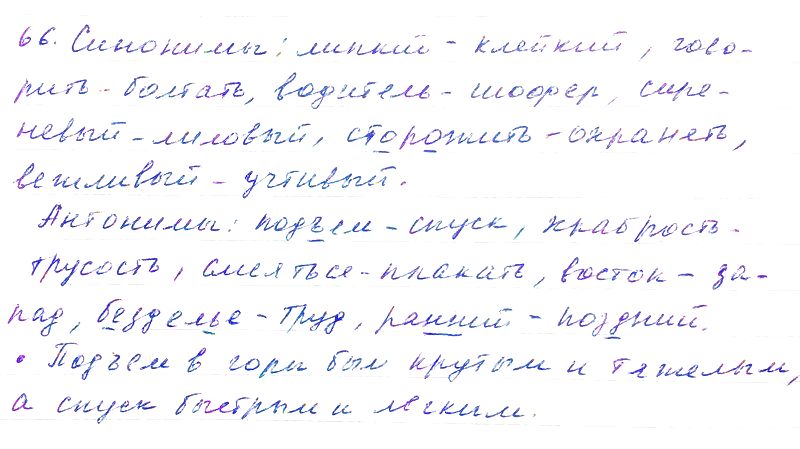 66. Синонимы: липкий - клейкий, гово-
рить - болтать, водитель - шофер, сире-
невый - лиловый, сторожить - охранять,
вежливый - учтивый.
Антонимы: подъем - спуск, храбрость -
трусость, смеяться - плакать, восток - за-
пад, безделье - труд, ранний - поздний.
• Подъем в горы был крутым и тяжелым,
а спуск быстрым и легким.